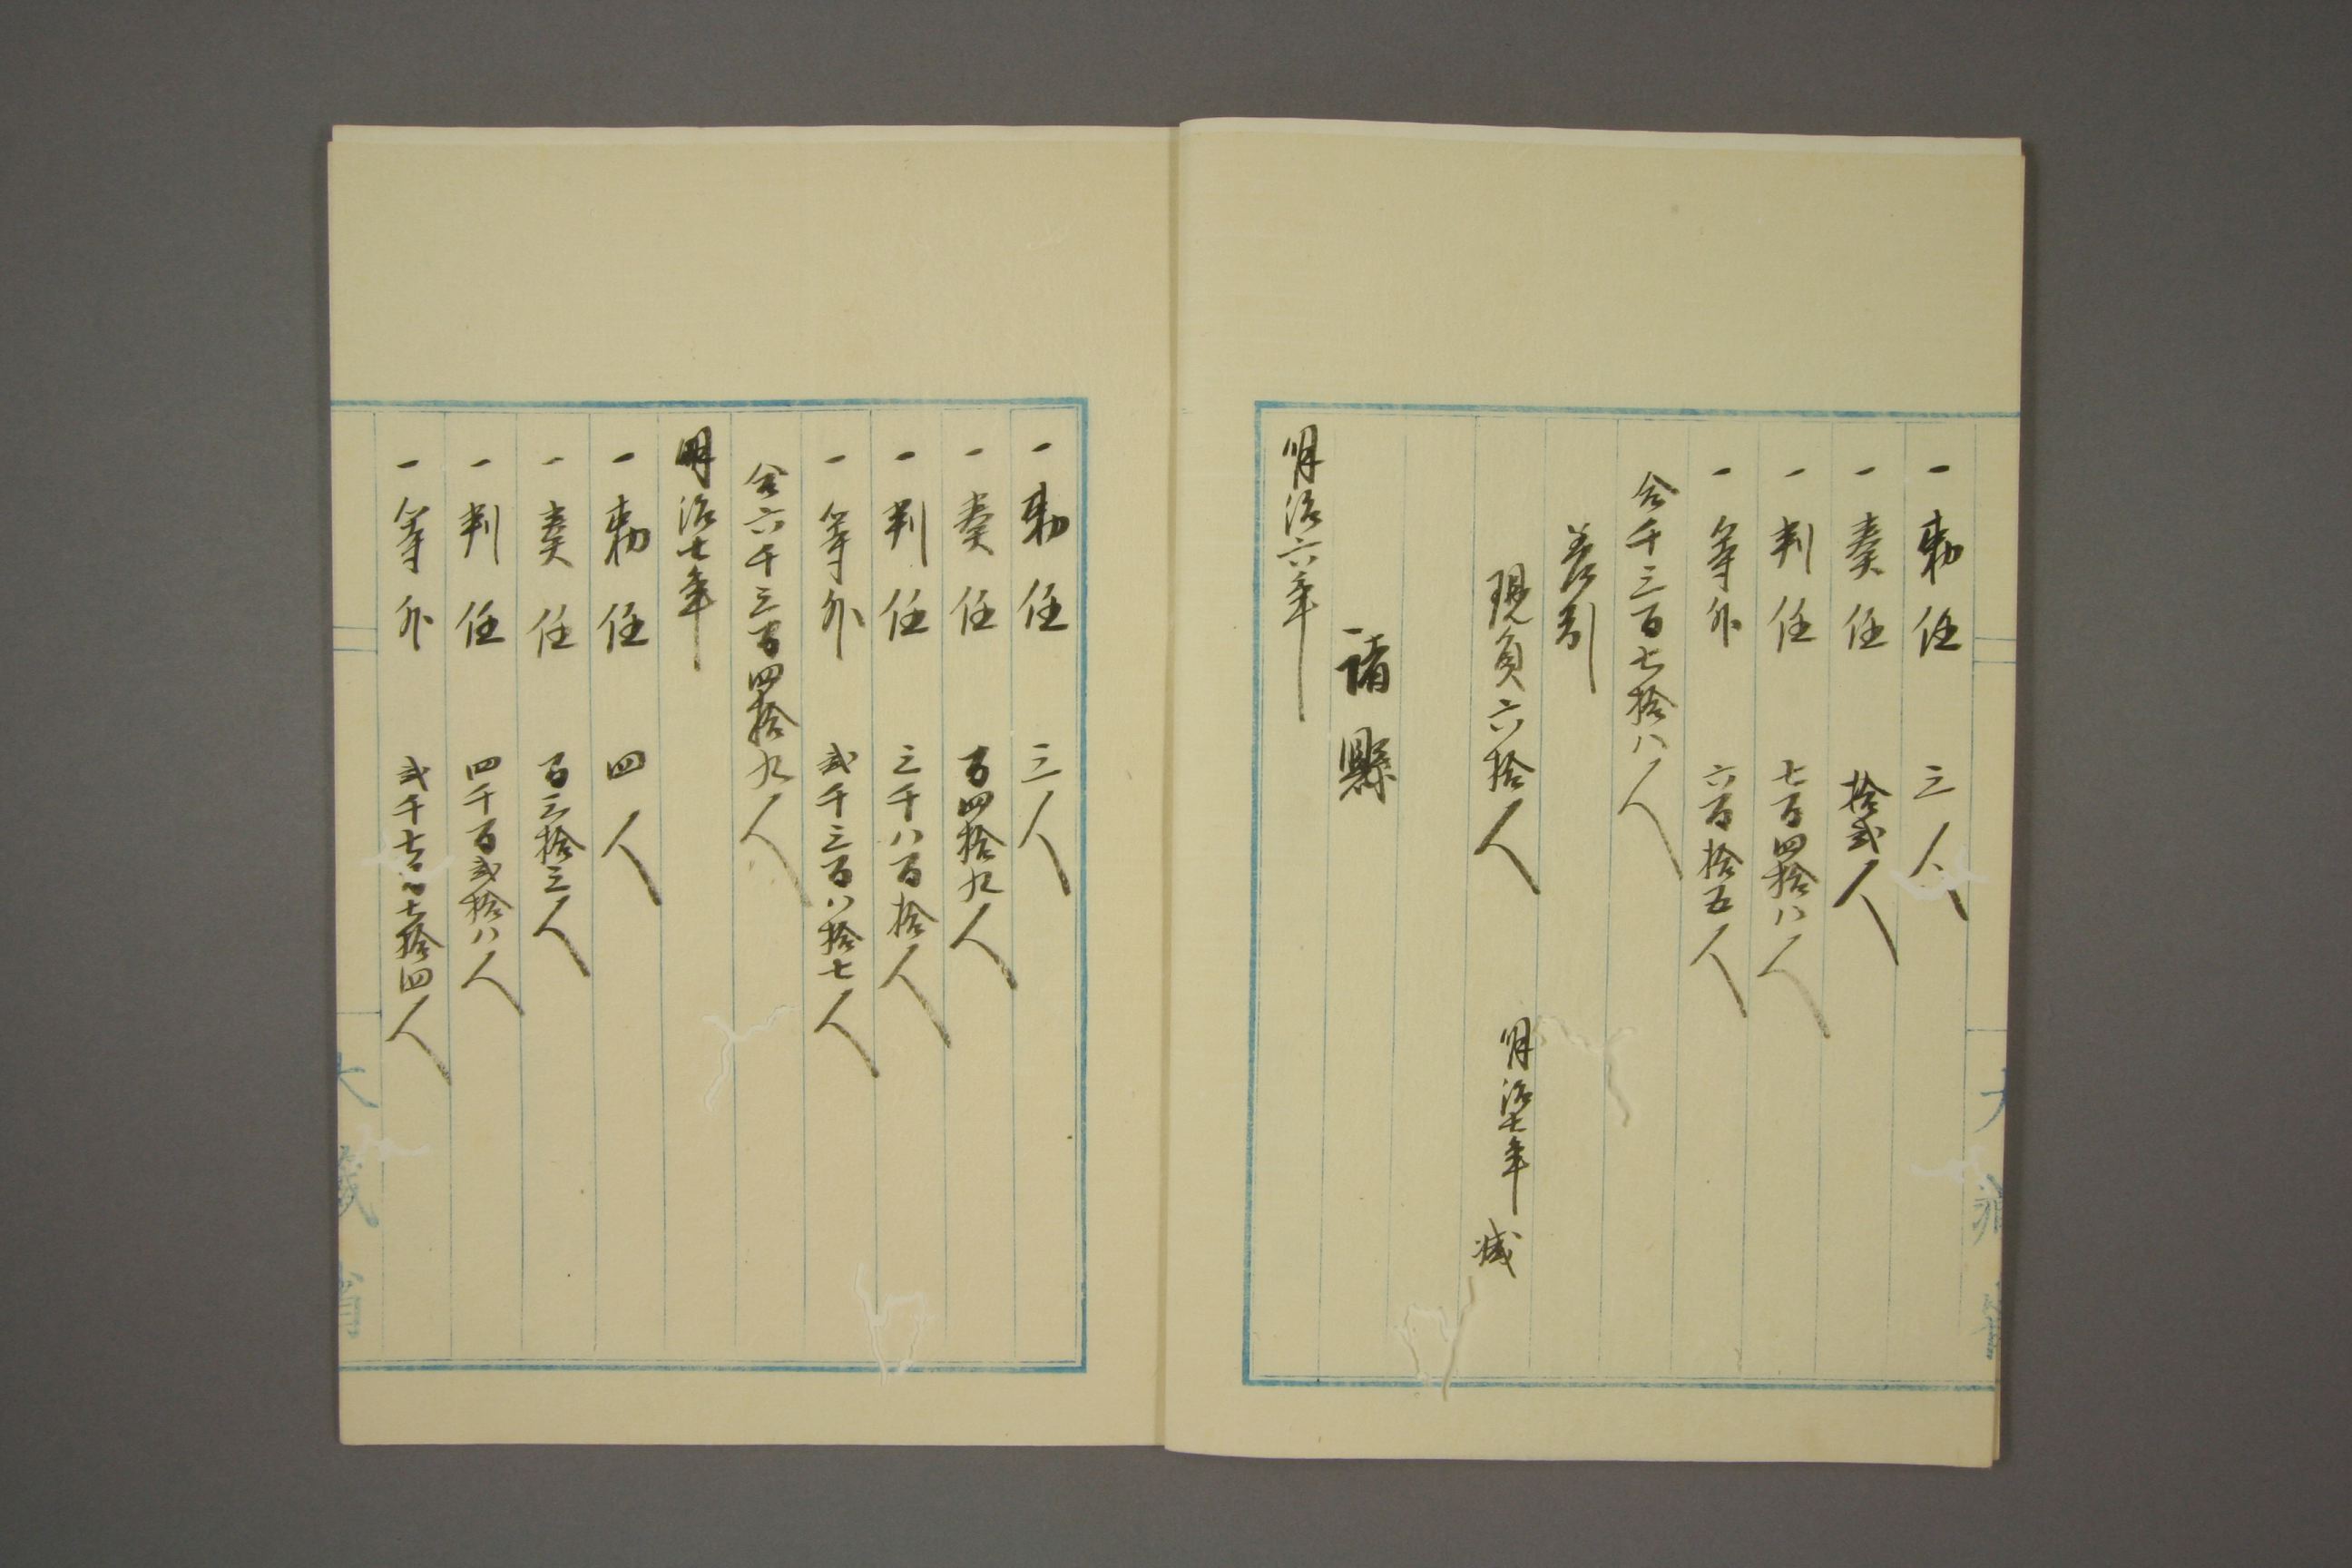 一勅任 三人
一奏任 拾弐人
一判任 七百四拾八人
一等外 六百拾五人
合千三百七拾八人
差引
現員六拾人 明治七年 減
一諸縣
明治六年
一勅任 三人
一奏任 百四拾九人
一判任 三千八百拾人
一等外 弐千三百八拾七人
合六千三百四拾九人
明治七年
一勅任 四人
一奏任 百三拾三人
一判任 四千百弐拾八人
一等外 弐千七百七拾四人
大藏省